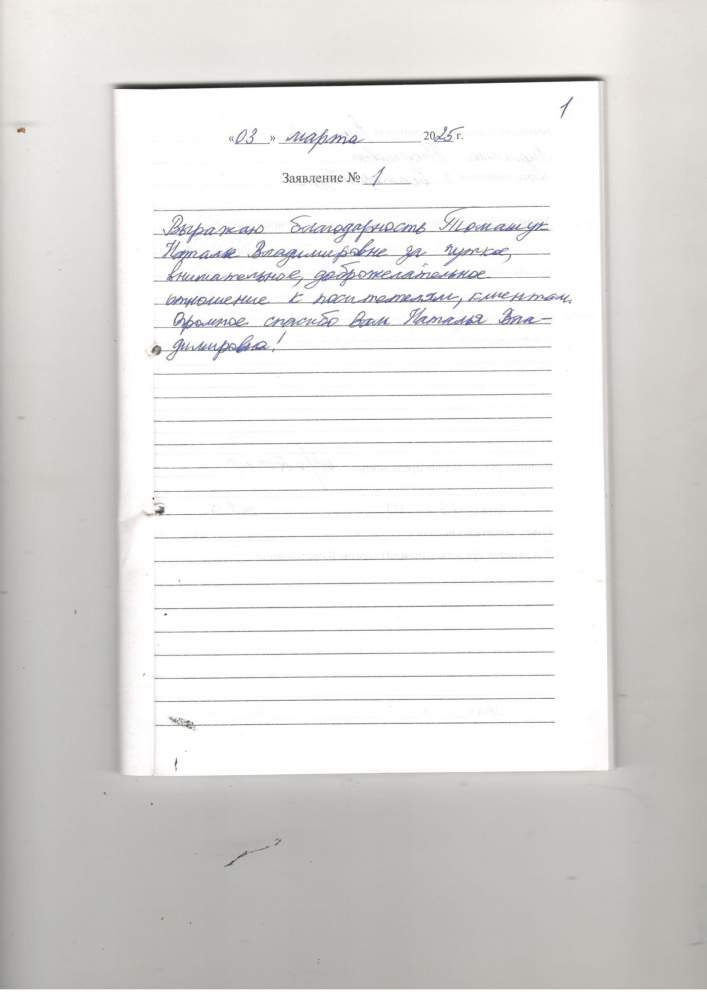 1
«03» марта 2025 г.
Заявление № 1
Выражаю благодарность Томащук
Наталье Владимировне за чуткое,
внимательное, доброжелательное
отношение к посетителям, клиентам.
Огромное спасибо Вам Наталья Вла-
димировна!